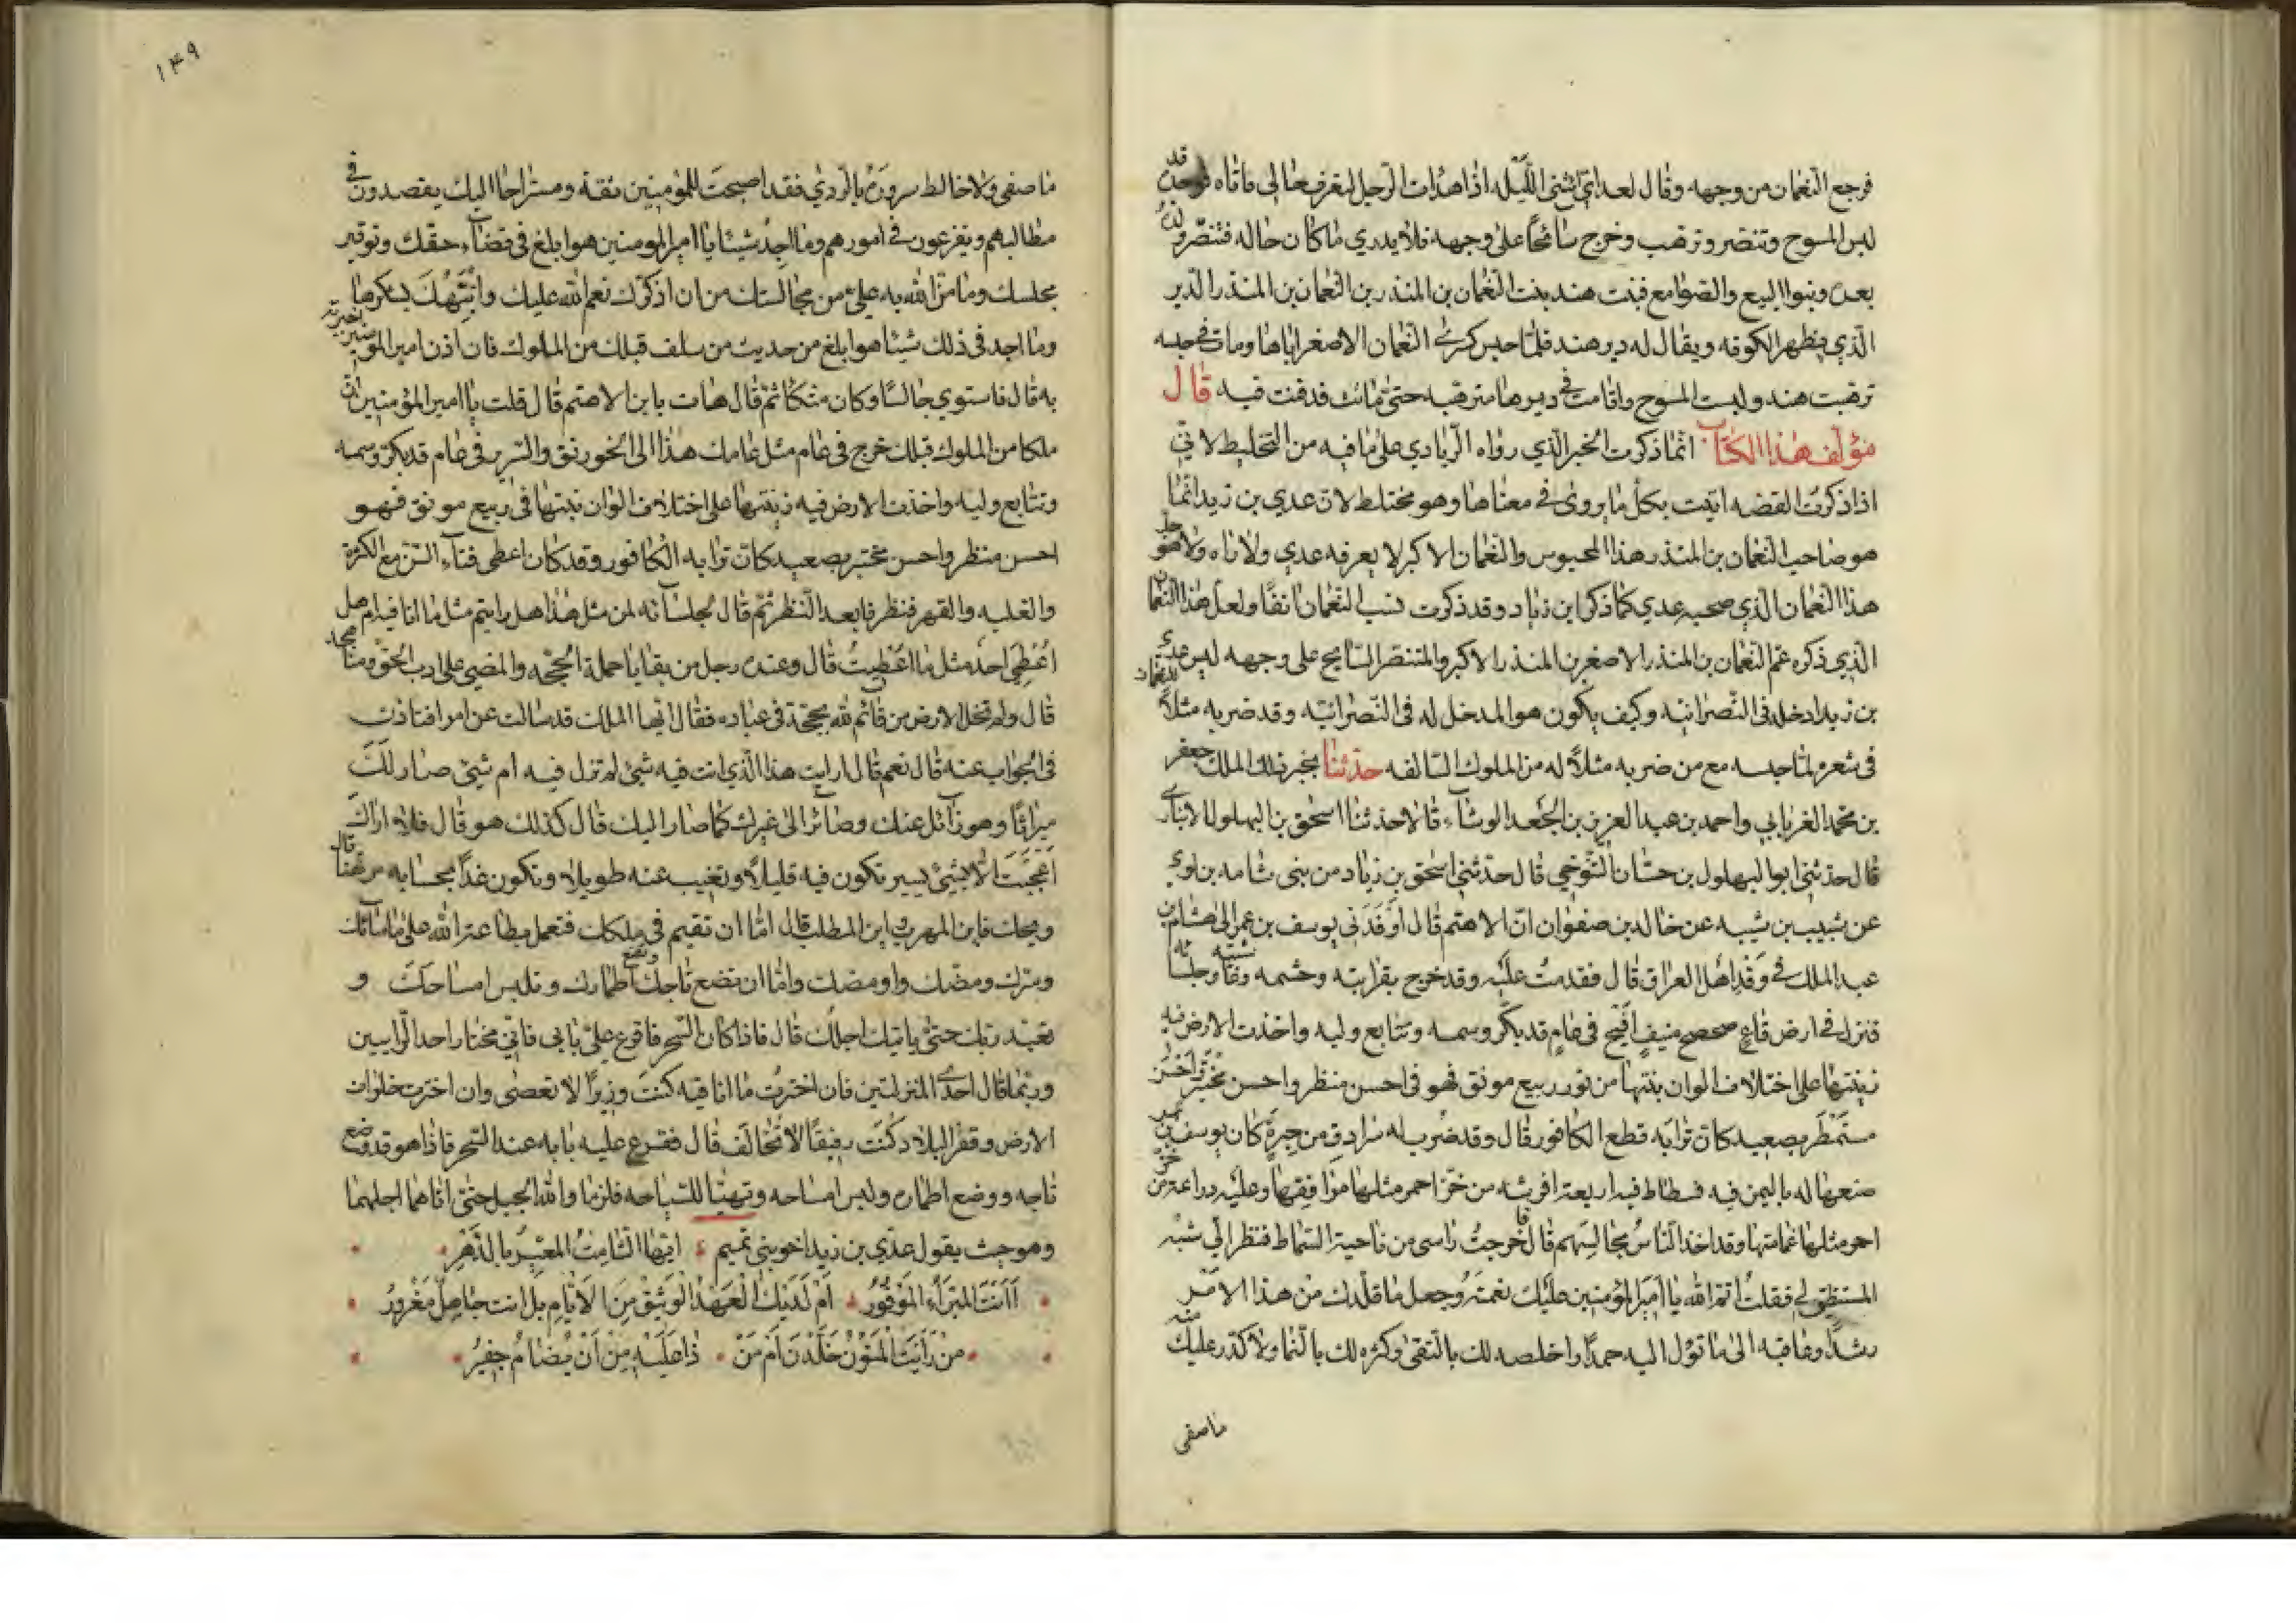 فرجع النعمان من وجهه وقال لعدي ائتني الليلة اذا هدات الرجل لتعرف حالي فاتاه فوجده قد
لبس المسوح وتنصر وترهب وخرج سائحا على وجهه فلا يدري ما كان حاله فتنصر ولده
بعده وبنوا البيع والصوامع فبنت هند بنت النعمان بن المنذر بن النعمان بن المنذر الدير
الذي بظهر الكوفه ويقال له دير هند فلما حبس كسرى النعمان الاصغر اباها ومات في حبسه
ترهبت هند ولبست المسوح واقامت في ديرها مترهبه حتى ماتت فدفنت فيه قال
مؤلف هذا الكتاب انما ذكرت الخبر الذي رواه الزيادي على ما فيه من التخليط لاني
اذا ذكرت القصه اتيت بكل ما يروى في معناها وهو مختلط لان عدي بن زيد انما
هو صاحب النعمان بن المنذر هذا المحبوس والنعمان الاكبر لا يعرفه عدي ولا راه ولا هو جد
هذا النعمان الذي صحبه عدي كما ذكر ابن زياد وقد ذكرت نسب النعمان انفا ولعل هذا النعمان
الذي ذكره عم النعمان بن المنذر الاصغر بن المنذر الاكبر والمتنصر السايح على وجهه ليس عدي
بن زيد ادخله في النصرانيه وكيف يكون هو المدخل له في النصرانيه وقد ضربه مثلا للنعمان
في شعره لما حبسه مع من ضربه مثلا له من الملوك السالفه حدثنا بخبر ذلك الملك جعفر
بن محمد الفريابي واحمد بن عبد العزيز بن الجعد الوشاء قالا حدثنا اسحق بن البهلول الانباري
قال حدثني ابو البهلول بن حسان التنوخي قال حدثني اسحق بن زياد من بني شامه بن لوي
عن شبيب بن شيبه عن خالد بن صفوان ان الاهتم قال اوفدني يوسف بن عمر الى هشام بن
عبد الملك في وفد اهل العراق قال فقدمت عليه وقد خرج بقرابته وحشمه وغاشيته وجلسائه
فنزل في ارض قاع صحصح منيف افيح في عام قد بكر وسمه وتتابع وليه واخذت الارض فيه
زينتها على اختلاف الوان بنتها من نور ربيع مونق فهو في احسن منظر واحسن مختبر واحسن
مستمطر بصعيد كان ترابه قطع الكافور قال وقد ضرب له سرادق من حبرة كان يوسف بن عمر
صنعها له باليمن فيه فسطاط فيه اربعة افرشه من خز احمر مثلها مرافقها وعليه دراعة من خز
احمر مثلها عمامتها وقد اخذ الناس مجالسهم قال فاخرجت راسي من ناحية السماط فنظر الي شبه
المستنطق لي فقلت اتم الله يا امير المؤمنين عليك نعمته وجعل ما قلدك من هذا الامر
رشدا وعاقبه الى ما تؤل اليه حمدا واخلصه لك بالتقى وكثره لك بالنما ولا كدر عليك منه
ما صفى
١٤٩
ما صفى ولا خالط سروره بالردي فقد اصبحت للمؤمنين ثقة ومستراحا اليك يقصدون في
مطالبهم ويفزعون في امورهم وما اجد شيئا يا امير المومنين هو ابلغ في قضاء حقك وتوقير
مجلسك وما من الله به علي من مجالستك من ان اذكرك نعم الله عليك وانبهك لشكرها
وما اجد في ذلك شيئا هو ابلغ من حديث من سلف قبلك من الملوك فان اذن امير المومنين اخبرته
به قال فاستوى جالسا وكان متكئا ثم قال هات يا بن الاهتم قال قلت يا امير المؤمنين ان
ملكا من الملوك قبلك خرج في عام مثل عامك هذا الى الخورنق والسرير في عام قد بكر وسمه
وتتابع وليه واخذت الارض فيه زينتها على اختلاف الوان نبتها في ربيع مونق فهو
احسن منظر واحسن مختبر بصعيد كان ترابه الكافور وقد كان اعطى فتاء السن مع الكثرة
والغلبه والقهر فنظر فابعد النظر ثم قال لجلسائه لمن مثل هذا هل رايتم مثل ما انا فيه ام هل
اعطي احد مثل ما اعطيت قال وعنده رجل من بقايا حملة الحجه والمضي على ادب الحق ومنهاجه
قال ولم تخل الارض من قائم لله بحجة في عباده فقال ايها الملك قد سالت عن امر افتاذن
في الجواب عنه قال نعم قال ارايت هذا الذي انت فيه شيئ لم تزل فيه ام شيئ صار لك
ميراثا وهو زائل عنك وصائر الى غيرك كما صار اليك قال كذلك هو قال فلا اراك
اعجبت الا بشيئ يسير تكون فيه قليلا وتغيب عنه طويلا وتكون غدا بحسابه مرتهنا قال
ويحك فاين المهرب واين المطلب قال اما ان تقيم في ملكك فتعمل بطاعة الله على ما ساءك
وسرك ومضك واومضك واما ان تضع تاجك وتضع اطمارك وتلبس امساحك و
تعبد ربك حتى ياتيك اجلك قال فاذا كان السحر فاقرع علي بابي فاني مختار احد الرايين
وربما قال احدى المنزلتين فان اخترت ما انا فيه كنت وزيرا لا تعصى وان اخترت خلوات
الارض وقفر البلاد كنت رفيقا لا تخالف قال فقرع عليه بابه عند السحر فاذا هو قد وضع
تاجه ووضع اطماره ولبس امساحه وتهيا للسياحه فلزما والله الجبل حتى اتاهما اجلهما
وهو حيث يقول عدي بن زيد اخو بني تميم ايها الشامت المعير بالدهر
اانت المبرا الموفور ام لديك العهد الوثيق من الايام بل انت جاهل مغرور
من رايت المنون خلدن ام من ذا عليه من ان يضام خفير